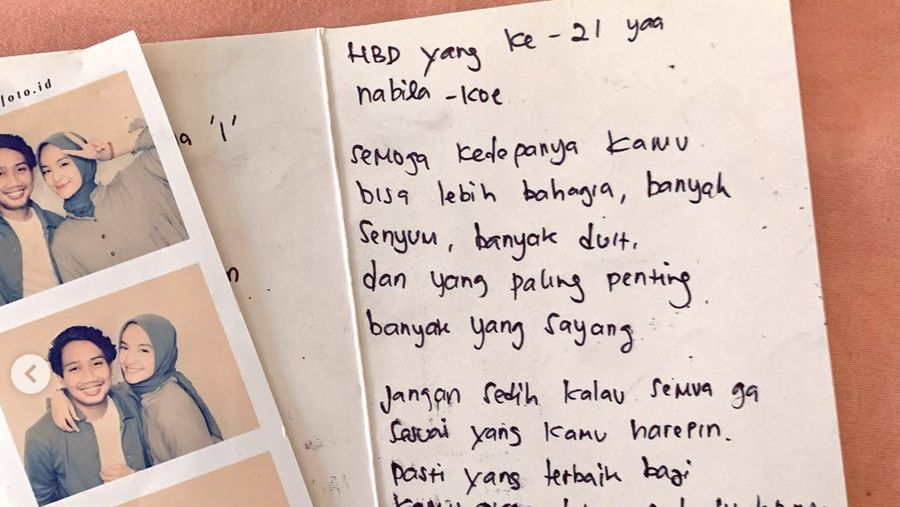 foto.id
a '1'
n
HBD yang ke - 21 yaa
nabila - koe
semoga kedepanya kamu
bisa lebih bahagia, banyak
senyum, banyak duit,
dan yang paling penting
banyak yang sayang
jangan sedih kalau semua ga
sesuai yang kamu harepin.
pasti yang terbaik bagi